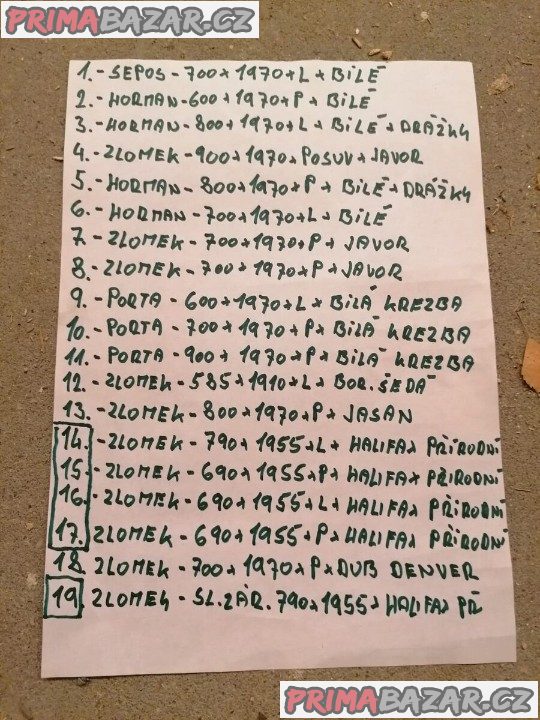 PRIMABAZAR.CZ
1.- SEPOS - 700 x 1970 x L x BÍLÉ
2.- HORMAN - 600 x 1970 x P x BÍLÉ
3.- HORMAN - 800 x 1970 x L x BÍLÉ x DRÁŽKY
4.- ZLOMEK - 900 x 1970 x POSUV x JAVOR
5.- HORMAN - 800 x 1970 x P x BÍLÉ x DRÁŽKY
6.- HORMAN - 700 x 1970 x L x BÍLÉ
7.- ZLOMEK - 700 x 1970 x P x JAVOR
8.- ZLOMEK - 700 x 1970 x P x JAVOR
9.- PORTA - 600 x 1970 x L x BÍLÁ KREZBA
10.- PORTA - 700 x 1970 x P x BÍLÁ KREZBA
11.- PORTA - 900 x 1970 x P x BÍLÁ KREZBA
12.- ZLOMEK - 585 x 1910 x L x BOR. ŠEDÁ
13.- ZLOMEK - 800 x 1970 x P x JASAN
14.- ZLOMEK - 790 x 1955 x L x HALIFAX PŘÍRODNÍ
15.- ZLOMEK - 690 x 1955 x P x HALIFAX PŘÍRODNÍ
16.- ZLOMEK - 690 x 1955 x L x HALIFAX PŘÍRODNÍ
17. ZLOMEK - 690 x 1955 x P x HALIFAX PŘÍRODNÍ
18. ZLOMEK - 700 x 1970 x P x DUB DENVER
19 ZLOMEK - SL. ZÁR. 790 x 1955 x HALIFAX PŘ
PRIMABAZAR.CZ